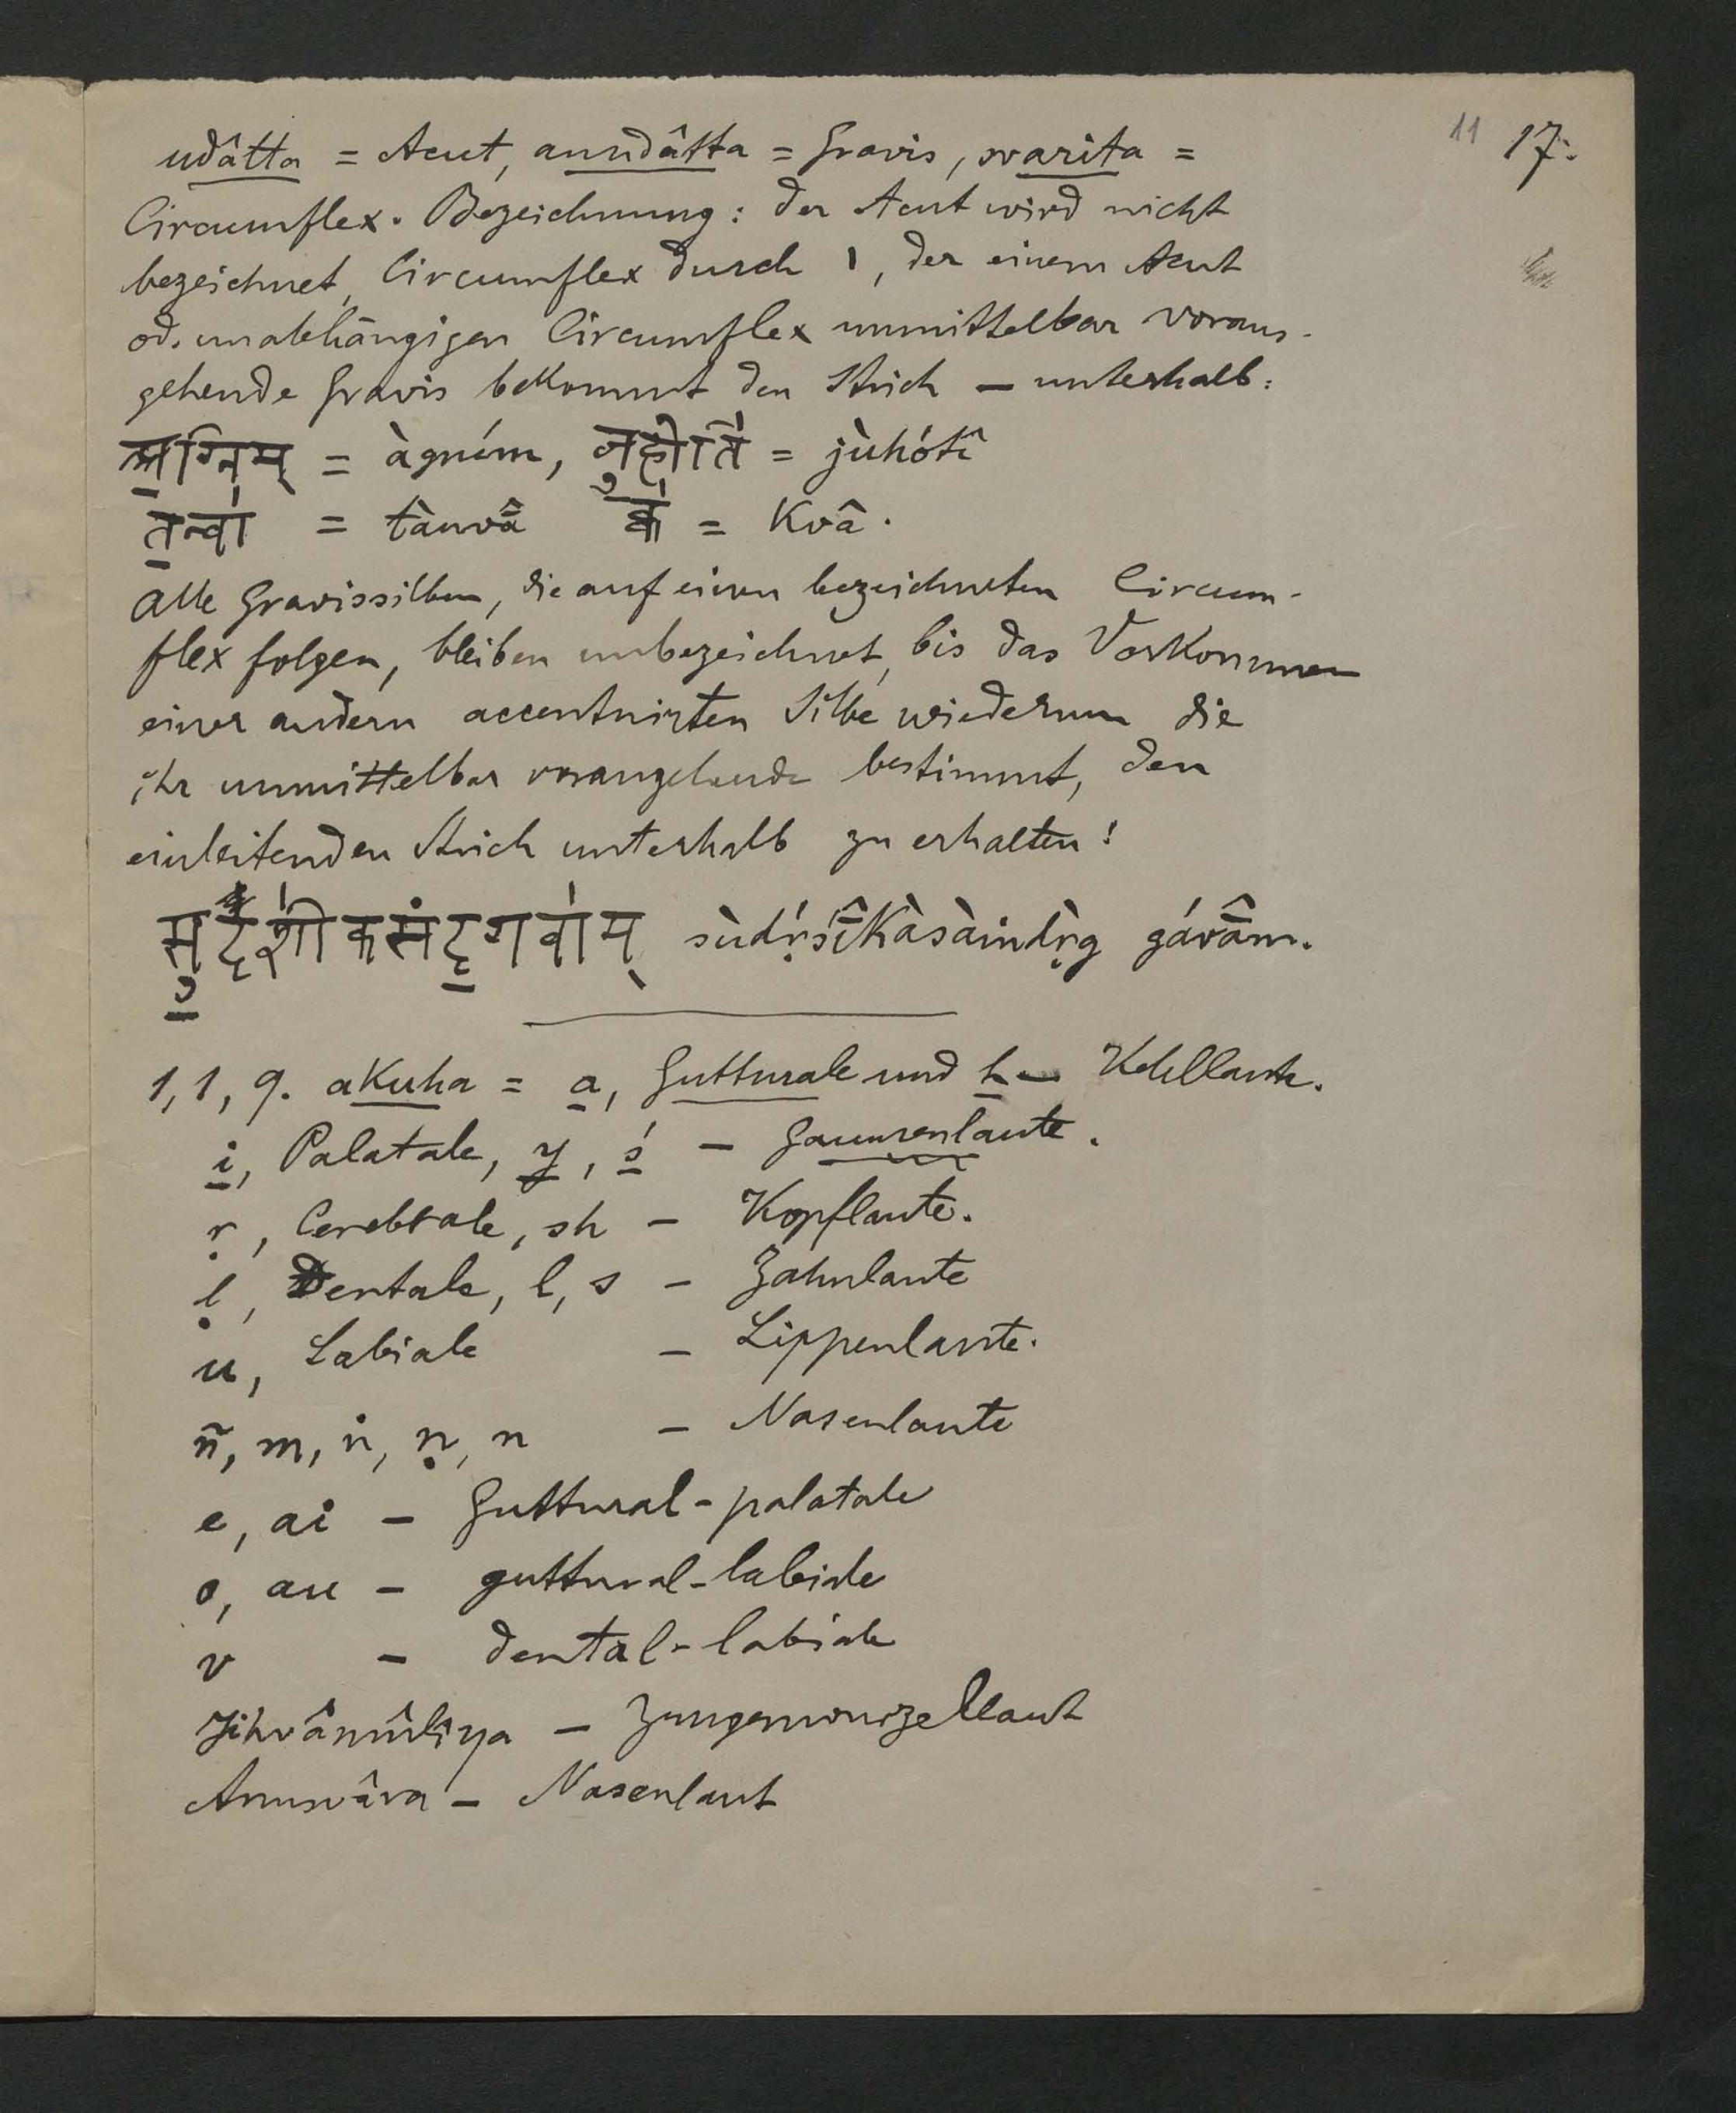 11 17.
udâtta = Acut, anudâtta = Gravis, svarita =
Circumflex. Bezeichnung: der Acut wird nicht
bezeichnet, Circumflex durch ı, der einem Acut
od. unabhängigen Circumflex unmittelbar voraus-
gehende Gravis bekommt den Strich – unterhalb:
अ॒ग्निम् = àgním, जु॒होति॑ = jùhótî
त॒न्वा॑ = tànvâ̄ क्व॑ = Kvâ.
Alle Gravissilben, die auf einen bezeichneten Circum-
flex folgen, bleiben unbezeichnet, bis das Vorkommen
einer andern accentuirten Silbe wiederum die
ihr unmittelbar vorangehende bestimmt, den
einleitenden Strich unterhalb zu erhalten!
सु॒दृशी॑कसंदृ॒गवा॑म् sùdṛ́śî̄Kàsàindṛ̀g gávâ̄m.
1,1,9. akuha = a, Gutturale und h – Kehllaute.
i, Palatale, y, ś – Gaumenlaute.
ṛ, Cerebrale, sh – Kopflaute.
ḷ, Dentale, l, s – Zahnlaute
u, Labiale – Lippenlaute.
ñ, m, ṅ, ṇ, n – Nasenlaute
e, ai – Guttural-palatale
o, au – guttural-labiale
v – dental-labiale
Jihvâmûlîya – Zungenwurzellaut
Anusvâra – Nasenlaut